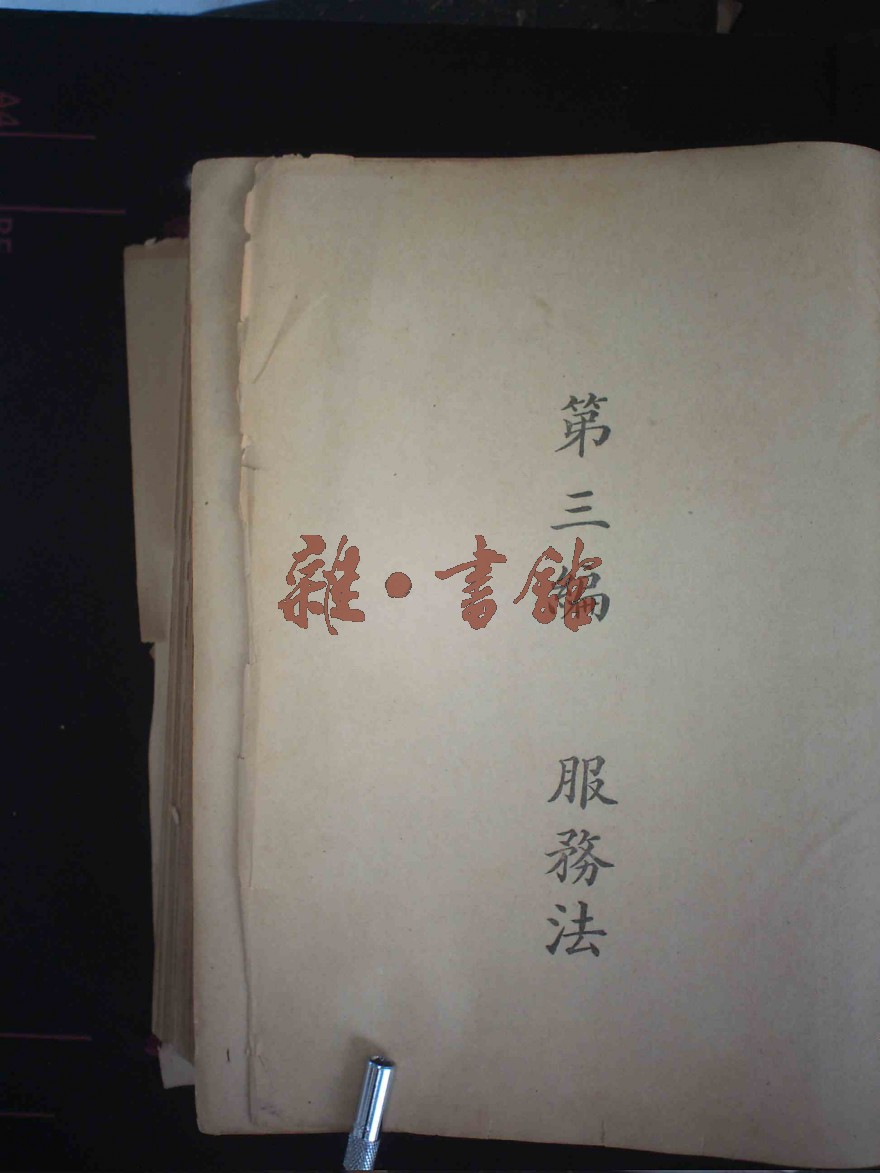 第三編 服務法
雜·書館
A4